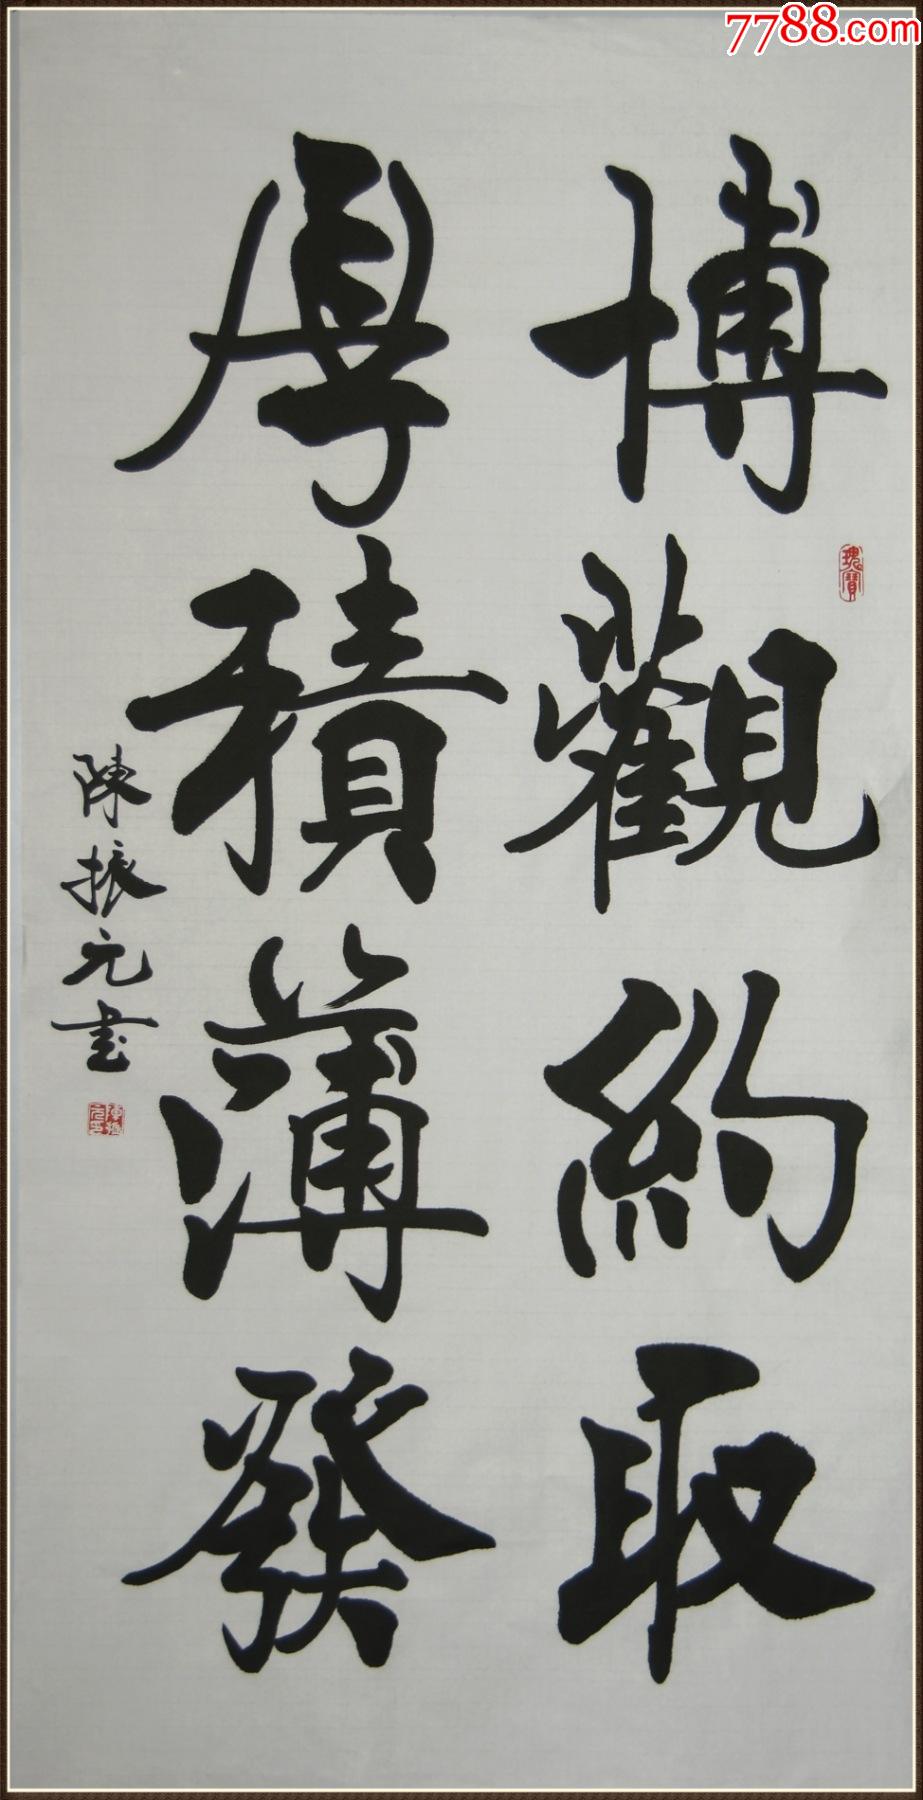 7788.com
博觀約取
厚積薄發
陳振元書
瑰寶